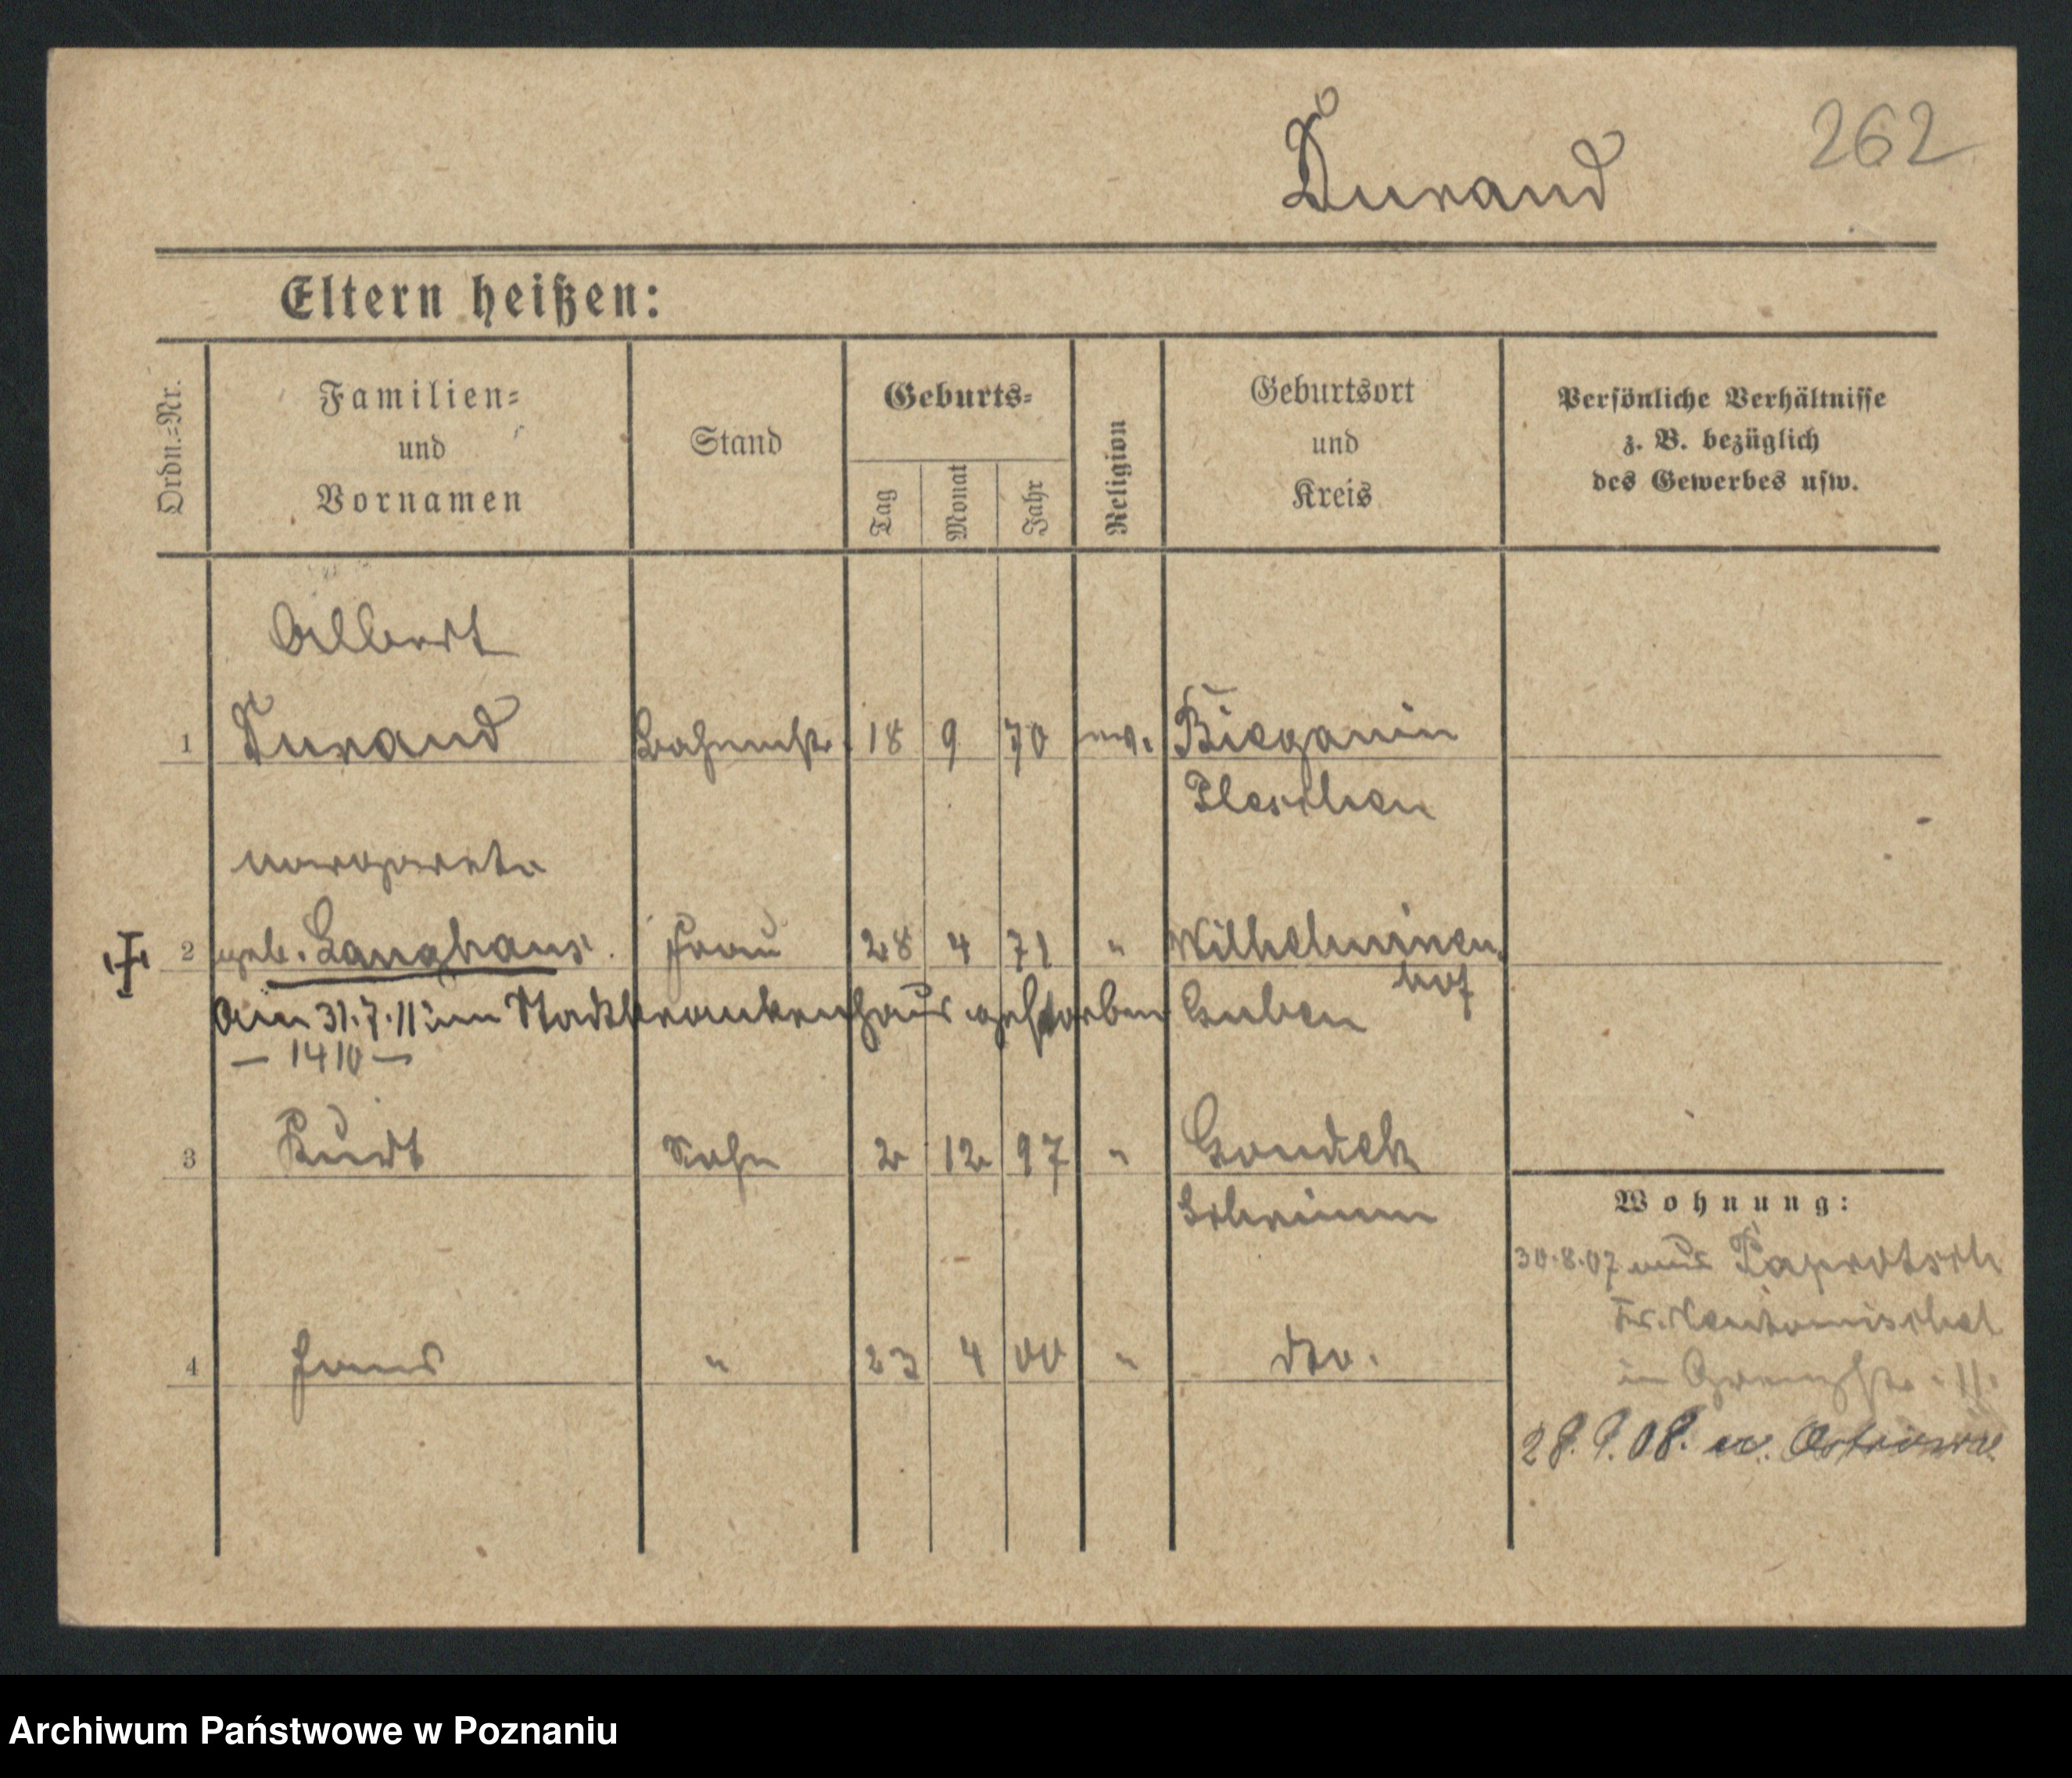 262
Durand
Eltern heißen:
Ordn.=Nr.
Familien=
und
Vornamen
Stand
Geburts=
Tag
Monat
Jahr
Religion
Geburtsort
und
Kreis
Persönliche Verhältnisse
z. B. bezüglich
des Gewerbes usw.
Albert
1 Durand Bahnmstr. 18 9 70 ev. Bieganin
Pleschen
Margarete
2 geb. Langhans. Frau 28 4 71 " Wilhelminen
hof
Am 31.7.11 im Stadtkrankenhaus gestorben Guben
— 1410 —
3 Kurt Sohn 2 12 97 "
Schrimm
4 Hans " 23 4 00 " dto.
Wohnung:
30.8.07 aus Paprotsch
Kr. Neutomischel
in Grenzstr. 11.
28.9.08. n. Ostrowo
Archiwum Państwowe w Poznaniu